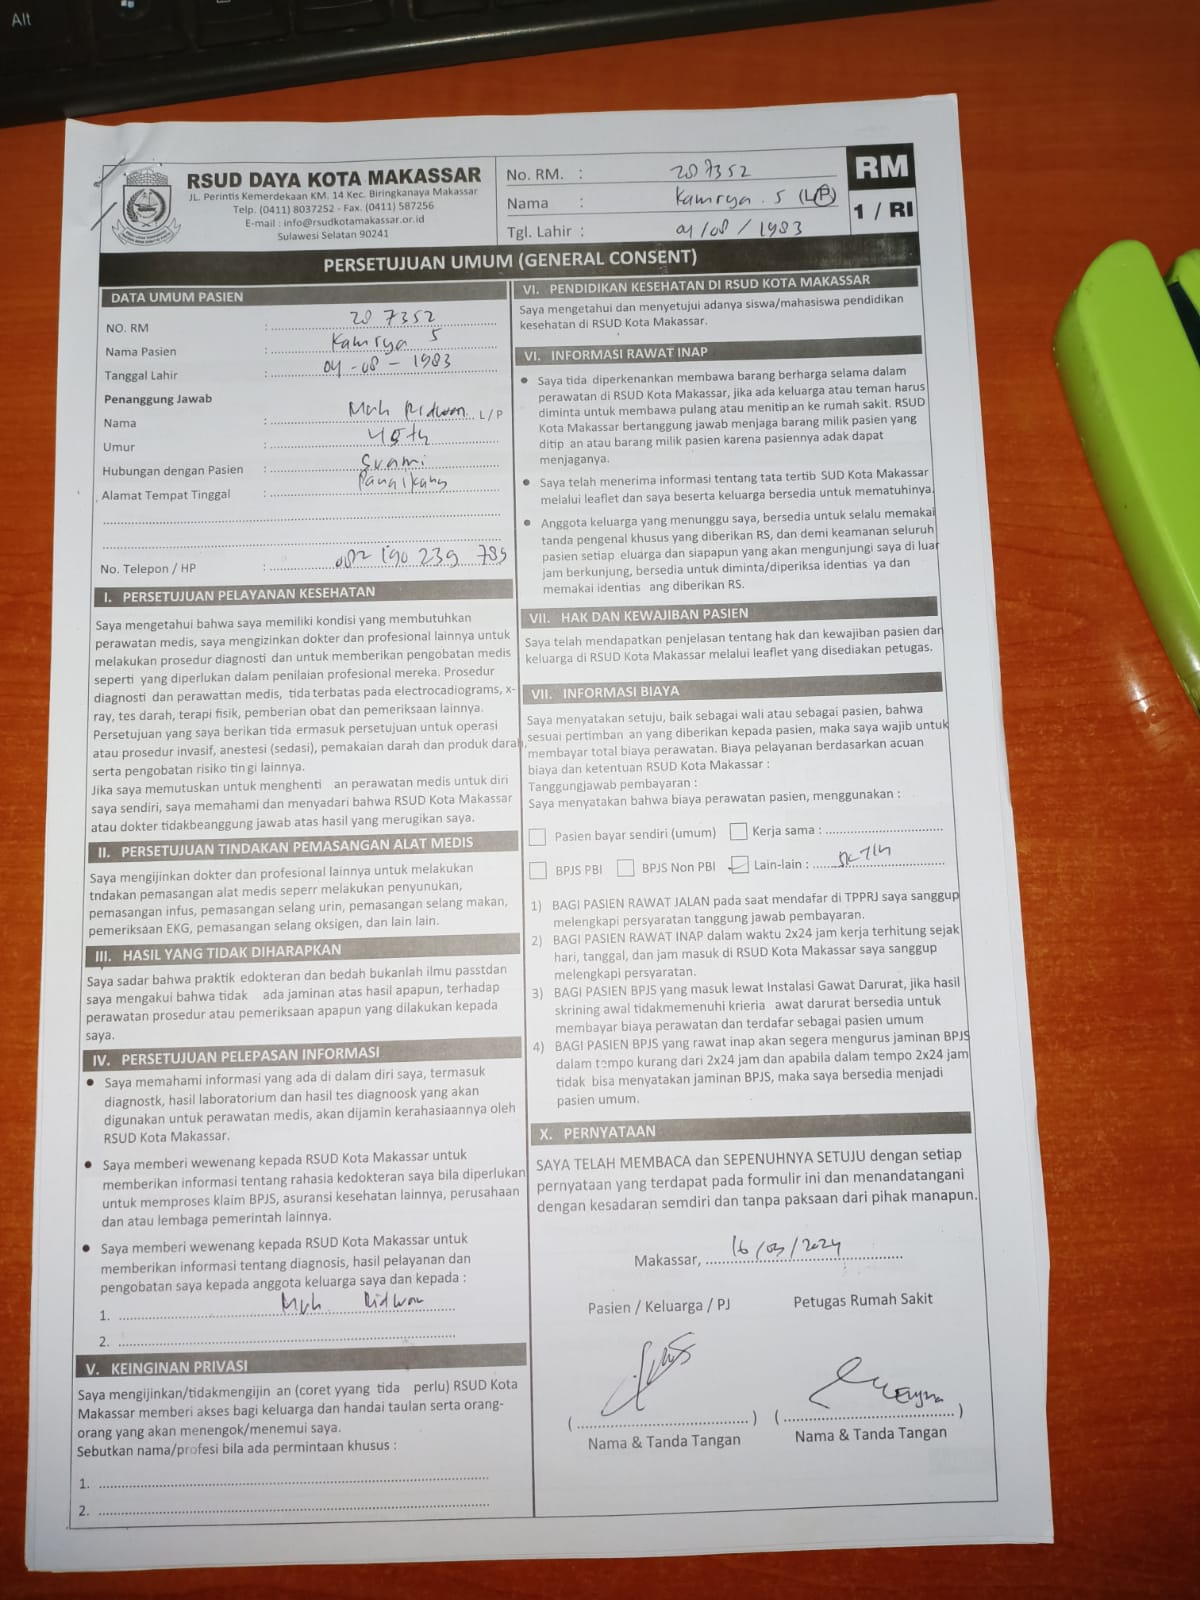 Alt
RSUD DAYA KOTA MAKASSAR
JL. Perintis Kemerdekaan KM. 14 Kec. Biringkanaya Makassar
Telp. (0411) 8037252 - Fax. (0411) 587256
E-mail : info@rsudkotamakassar.or.id
Sulawesi Selatan 90241
No. RM. : 207352
Nama : Kamrya. S (L/P)
Tgl. Lahir : 04/08/1983
RM
1 / RI
PERSETUJUAN UMUM (GENERAL CONSENT)
DATA UMUM PASIEN
NO. RM : 207352
Nama Pasien : Kamrya S
Tanggal Lahir : 04-08-1983
Penanggung Jawab
Nama : Muh Ridwan L/P
Umur : 45 th
Hubungan dengan Pasien : Suami
Alamat Tempat Tinggal :
No. Telepon / HP : 082 190 239 785
I. PERSETUJUAN PELAYANAN KESEHATAN
Saya mengetahui bahwa saya memiliki kondisi yang membutuhkan
perawatan medis, saya mengizinkan dokter dan profesional lainnya untuk
melakukan prosedur diagnosti dan untuk memberikan pengobatan medis
seperti yang diperlukan dalam penilaian profesional mereka. Prosedur
diagnosti dan perawattan medis, tida terbatas pada electrocadiograms, x-
ray, tes darah, terapi fisik, pemberian obat dan pemeriksaan lainnya.
Persetujuan yang saya berikan tida ermasuk persetujuan untuk operasi
atau prosedur invasif, anestesi (sedasi), pemakaian darah dan produk darah,
serta pengobatan risiko tin gi lainnya.
Jika saya memutuskan untuk menghenti an perawatan medis untuk diri
saya sendiri, saya memahami dan menyadari bahwa RSUD Kota Makassar
atau dokter tidakbeanggung jawab atas hasil yang merugikan saya.
II. PERSETUJUAN TINDAKAN PEMASANGAN ALAT MEDIS
Saya mengijinkan dokter dan profesional lainnya untuk melakukan
tndakan pemasangan alat medis seperr melakukan penyunukan,
pemasangan infus, pemasangan selang urin, pemasangan selang makan,
pemeriksaan EKG, pemasangan selang oksigen, dan lain lain.
III. HASIL YANG TIDAK DIHARAPKAN
Saya sadar bahwa praktik edokteran dan bedah bukanlah ilmu passtdan
saya mengakui bahwa tidak ada jaminan atas hasil apapun, terhadap
perawatan prosedur atau pemeriksaan apapun yang dilakukan kepada
saya.
IV. PERSETUJUAN PELEPASAN INFORMASI
● Saya memahami informasi yang ada di dalam diri saya, termasuk
diagnostk, hasil laboratorium dan hasil tes diagnoosk yang akan
digunakan untuk perawatan medis, akan dijamin kerahasiaannya oleh
RSUD Kota Makassar.
● Saya memberi wewenang kepada RSUD Kota Makassar untuk
memberikan informasi tentang rahasia kedokteran saya bila diperlukan
untuk memproses klaim BPJS, asuransi kesehatan lainnya, perusahaan
dan atau lembaga pemerintah lainnya.
● Saya memberi wewenang kepada RSUD Kota Makassar untuk
memberikan informasi tentang diagnosis, hasil pelayanan dan
pengobatan saya kepada anggota keluarga saya dan kepada :
1. Muh Ridwan
2.
V. KEINGINAN PRIVASI
Saya mengijinkan/tidakmengijin an (coret yyang tida perlu) RSUD Kota
Makassar memberi akses bagi keluarga dan handai taulan serta orang-
orang yang akan menengok/menemui saya.
Sebutkan nama/profesi bila ada permintaan khusus :
1.
2.
VI. PENDIDIKAN KESEHATAN DI RSUD KOTA MAKASSAR
Saya mengetahui dan menyetujui adanya siswa/mahasiswa pendidikan
kesehatan di RSUD Kota Makassar.
VI. INFORMASI RAWAT INAP
● Saya tida diperkenankan membawa barang berharga selama dalam
perawatan di RSUD Kota Makassar, jika ada keluarga atau teman harus
diminta untuk membawa pulang atau menitip an ke rumah sakit. RSUD
Kota Makassar bertanggung jawab menjaga barang milik pasien yang
ditip an atau barang milik pasien karena pasiennya adak dapat
menjaganya.
● Saya telah menerima informasi tentang tata tertib SUD Kota Makassar
melalui leaflet dan saya beserta keluarga bersedia untuk mematuhinya.
● Anggota keluarga yang menunggu saya, bersedia untuk selalu memakai
tanda pengenal khusus yang diberikan RS, dan demi keamanan seluruh
pasien setiap eluarga dan siapapun yang akan mengunjungi saya di luar
jam berkunjung, bersedia untuk diminta/diperiksa identias ya dan
memakai identias ang diberikan RS.
VII. HAK DAN KEWAJIBAN PASIEN
Saya telah mendapatkan penjelasan tentang hak dan kewajiban pasien dan
keluarga di RSUD Kota Makassar melalui leaflet yang disediakan petugas.
VII. INFORMASI BIAYA
Saya menyatakan setuju, baik sebagai wali atau sebagai pasien, bahwa
sesuai pertimban an yang diberikan kepada pasien, maka saya wajib untuk
membayar total biaya perawatan. Biaya pelayanan berdasarkan acuan
biaya dan ketentuan RSUD Kota Makassar :
Tanggungjawab pembayaran :
Saya menyatakan bahwa biaya perawatan pasien, menggunakan :
Pasien bayar sendiri (umum) Kerja sama :
BPJS PBI BPJS Non PBI Lain-lain :
1) BAGI PASIEN RAWAT JALAN pada saat mendafar di TPPRJ saya sanggup
melengkapi persyaratan tanggung jawab pembayaran.
2) BAGI PASIEN RAWAT INAP dalam waktu 2x24 jam kerja terhitung sejak
hari, tanggal, dan jam masuk di RSUD Kota Makassar saya sanggup
melengkapi persyaratan.
3) BAGI PASIEN BPJS yang masuk lewat Instalasi Gawat Darurat, jika hasil
skrining awal tidakmemenuhi krieria awat darurat bersedia untuk
membayar biaya perawatan dan terdafar sebagai pasien umum
4) BAGI PASIEN BPJS yang rawat inap akan segera mengurus jaminan BPJS
dalam tempo kurang dari 2x24 jam dan apabila dalam tempo 2x24 jam
tidak bisa menyatakan jaminan BPJS, maka saya bersedia menjadi
pasien umum.
X. PERNYATAAN
SAYA TELAH MEMBACA dan SEPENUHNYA SETUJU dengan setiap
pernyataan yang terdapat pada formulir ini dan menandatangani
dengan kesadaran semdiri dan tanpa paksaan dari pihak manapun.
Makassar, 16/03/2024
Pasien / Keluarga / PJ Petugas Rumah Sakit
( ) ( )
Nama & Tanda Tangan Nama & Tanda Tangan